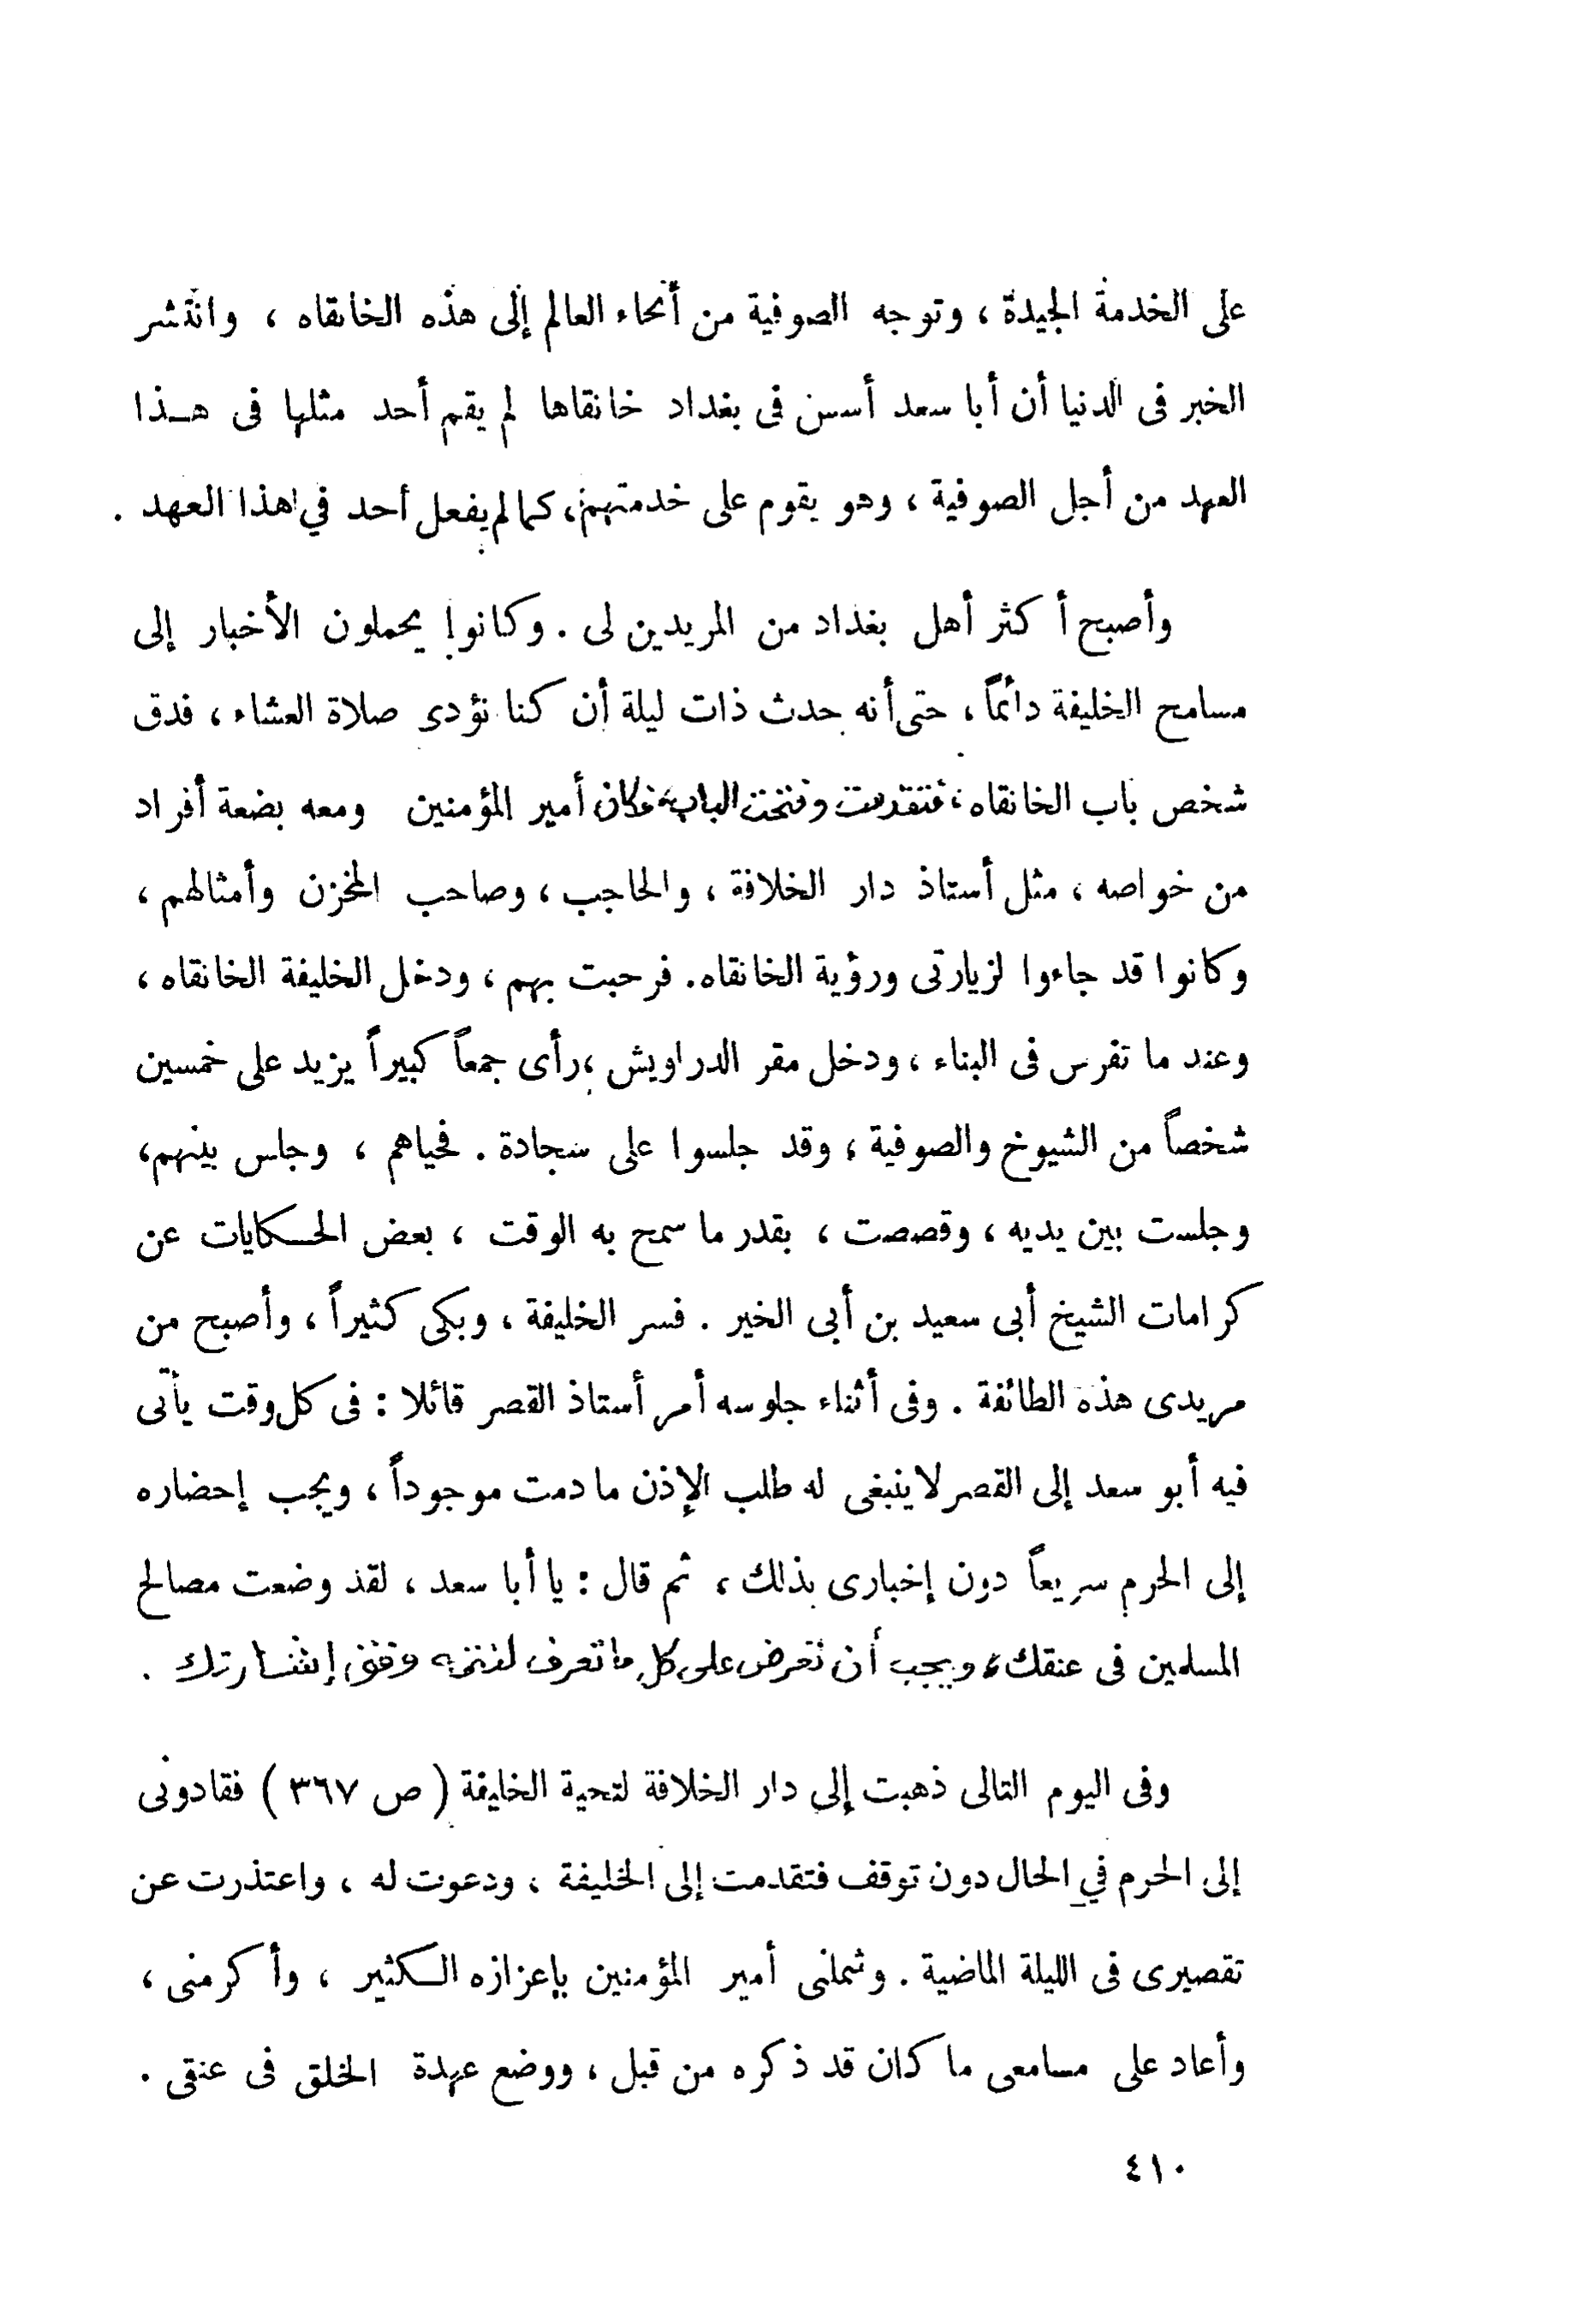 على الخدمة الجيدة ، وتوجه الصوفية من أنحاء العالم إلى هذه الخانقاه ، وانتشر
الخبر فى الدنيا أن أبا سعد أسس فى بغداد خانقاها لم يقم أحد مثلها فى هـذا
العهد من أجل الصوفية ، وهو يقوم على خدمتهم، كما لم يفعل أحد في هذا العهد .
وأصبح أكثر أهل بغداد من المريدين لى . وكانوا يحملون الأخبار إلى
مسامح الخليفة دائماً ، حتى أنه حدث ذات ليلة أن كنا نؤدى صلاة العشاء ، فدق
شخص باب الخانقاه ، فتقدمت وفتحت الباب، فكان أمير المؤمنين ومعه بضعة أفراد
من خواصه ، مثل أستاذ دار الخلافة ، والحاجب ، وصاحب المخزن وأمثالهم ،
وكانوا قد جاءوا لزيارتى ورؤية الخانقاه. فرحبت بهم ، ودخل الخليفة الخانقاه ،
وعند ما تفرس فى البناء ، ودخل مقر الدراويش ، رأى جمعاً كبيراً يزيد على خمسين
شخصاً من الشيوخ والصوفية ، وقد جلسوا على سجادة . فحياهم ، وجلس بينهم،
وجلست بين يديه ، وقصصت ، بقدر ما سمح به الوقت ، بعض الحـكايات عن
كرامات الشيخ أبى سعيد بن أبى الخير . فسر الخليفة ، وبكى كثيراً ، وأصبح من
مريدى هذه الطائفة . وفى أثناء جلوسه أمر أستاذ القصر قائلا : فى كل وقت يأتى
فيه أبو سعد إلى القصر لا ينبغى له طلب الإذن ما دمت موجوداً ، ويجب إحضاره
إلى الحرم سريعاً دون إخبارى بذلك ، ثم قال : يا أبا سعد ، لقد وضعت مصالح
المسلمين فى عنقك، ويجب أن تعرض على كل ما تعرف لننفذه وفق إشـارتك .
وفى اليوم التالى ذهبت إلى دار الخلافة لتحية الخليفة ( ص ٣٦٧ ) فقادونى
إلى الحرم في الحال دون توقف فتقدمت إلى الخليفة ، ودعوت له ، واعتذرت عن
تقصيرى فى الليلة الماضية . وشملنى أمير المؤمنين بإعزازه الـكثير ، وأكرمنى ،
وأعاد على مسامعى ما كان قد ذكره من قبل ، ووضع عهدة الخلق فى عنقى .
٤١٠